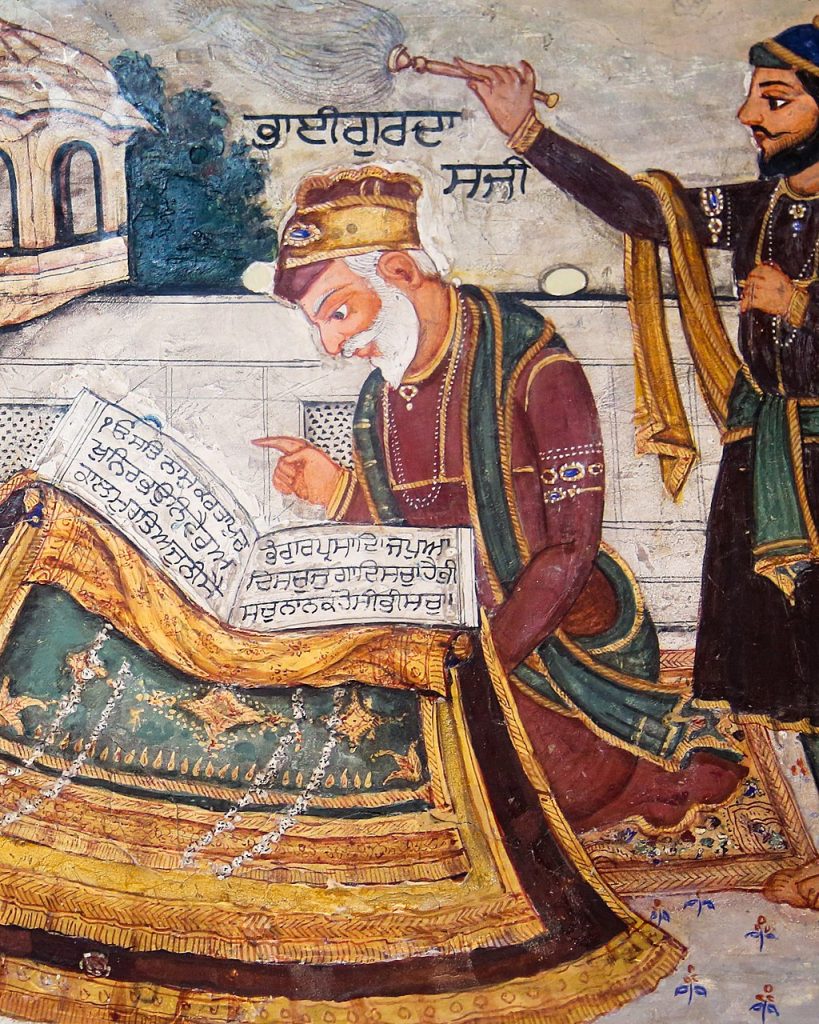 ਭਾਈਗੁਰਦਾ
ਸਜੀ
੧ੳ ਸਤਿ ਨਾਮੁ ਕਰਤਾਪੁਰ
ਖੁਨਿਰਭਉਨਿਰਵੈਰਅ
ਕਾਲਮੂਰਤਿਅਜੂਨੀਸੈ
ਭੰਗੁਰਪ੍ਰਸਾਦਿ॥ਜਪੁ॥ਆ
ਦਿਸਚੁਜੁਗਾਦਿਸਚੁ॥ਹੈਭੀ
ਸਚੁਨਾਨਕਹੋਸੀਭੀਸਚੁ॥